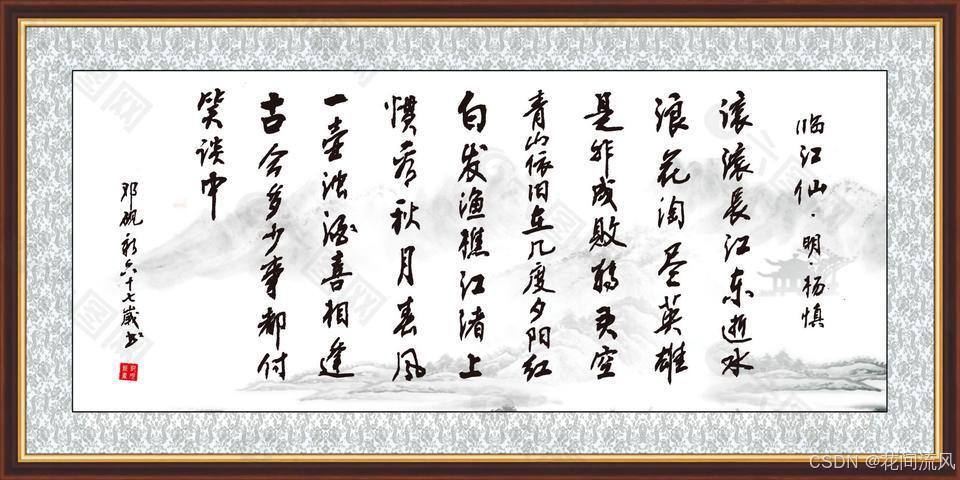 临江仙·明·杨慎
滚滚长江东逝水
浪花淘尽英雄
是非成败转头空
青山依旧在几度夕阳红
白发渔樵江渚上
惯看秋月春风
一壶浊酒喜相逢
古今多少事都付
笑谈中
邓砚六十七岁书
CSDN @花间流风